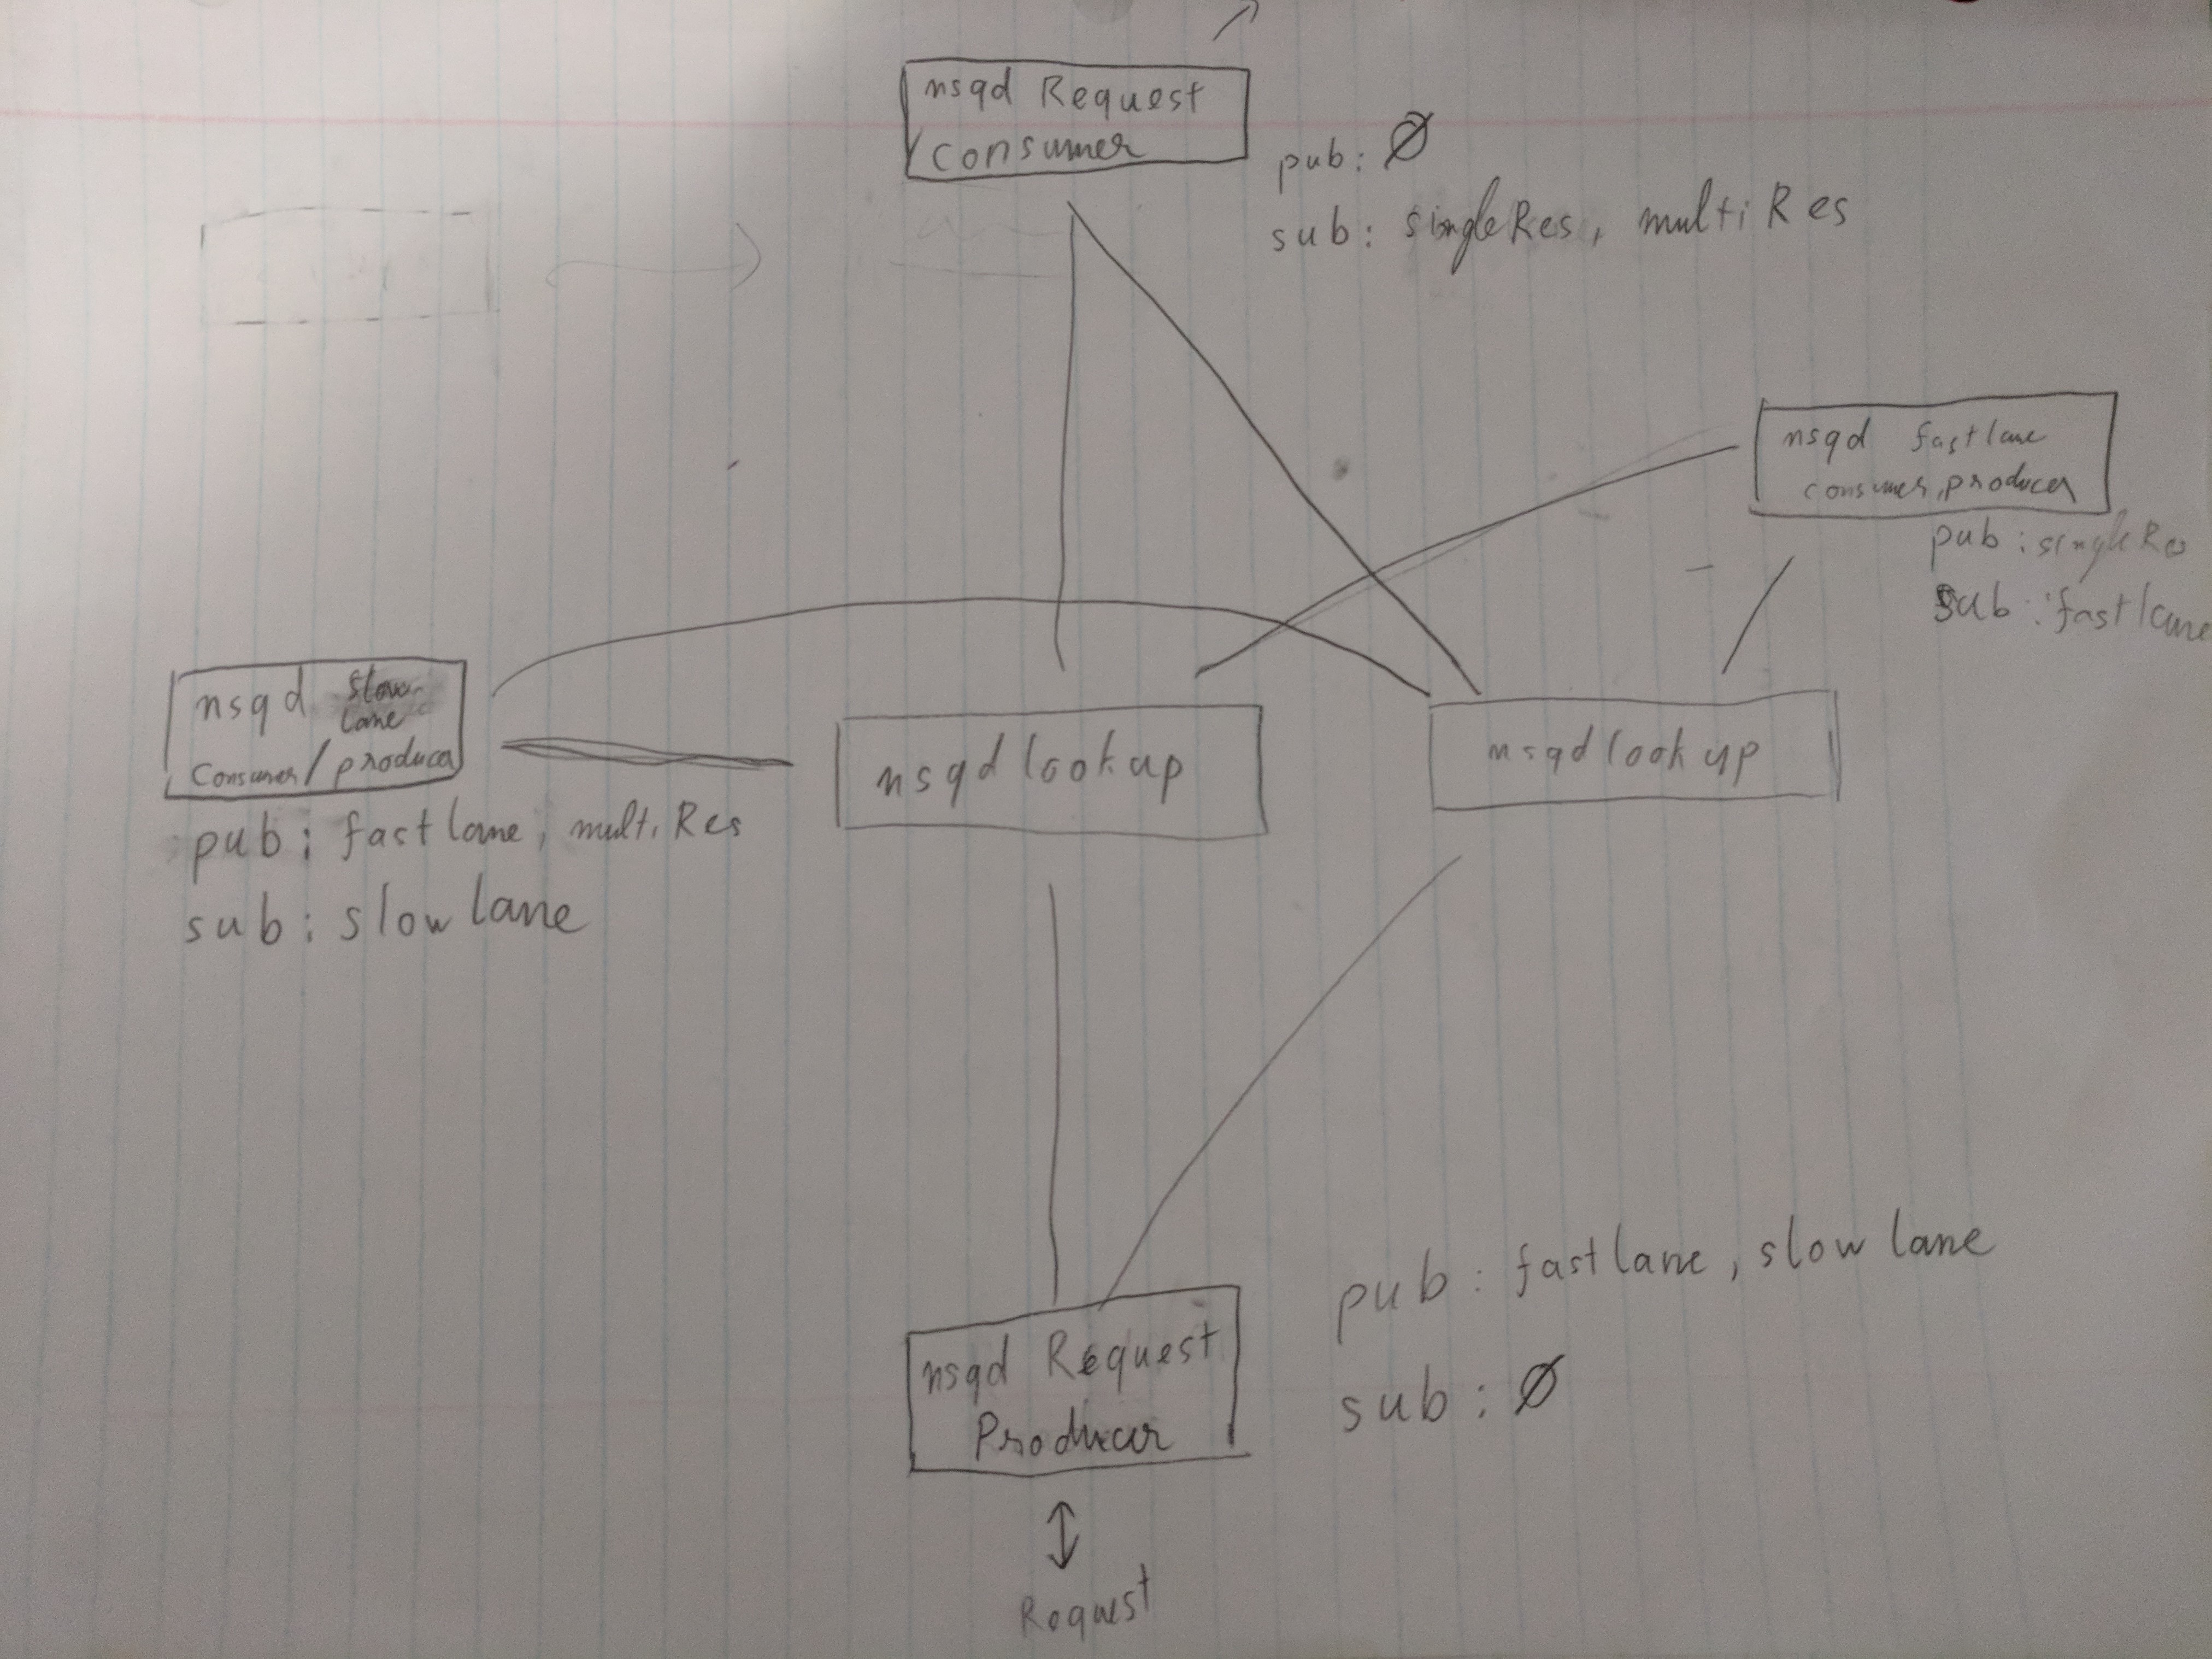 nsqd Request
consumer
pub: Ø
sub: singleRes, multiRes
nsqd fastlane
consumer, producer
pub: singleRes
sub: fastlane
nsqd slow
lane
consumer/producer
pub: fastlane, multiRes
sub: slowlane
nsqdlookup
nsqdlookup
pub: fastlane, slowlane
sub: Ø
nsqd Request
Producer
Request